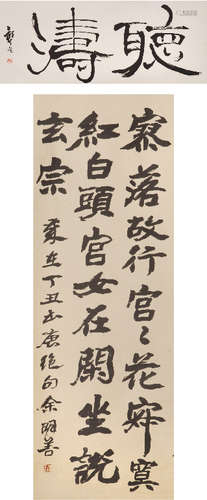 聽濤
寥落故行宮々花寂寞
紅白頭宮女在閑坐說
玄宗
歲在丁丑書唐絕句余明善